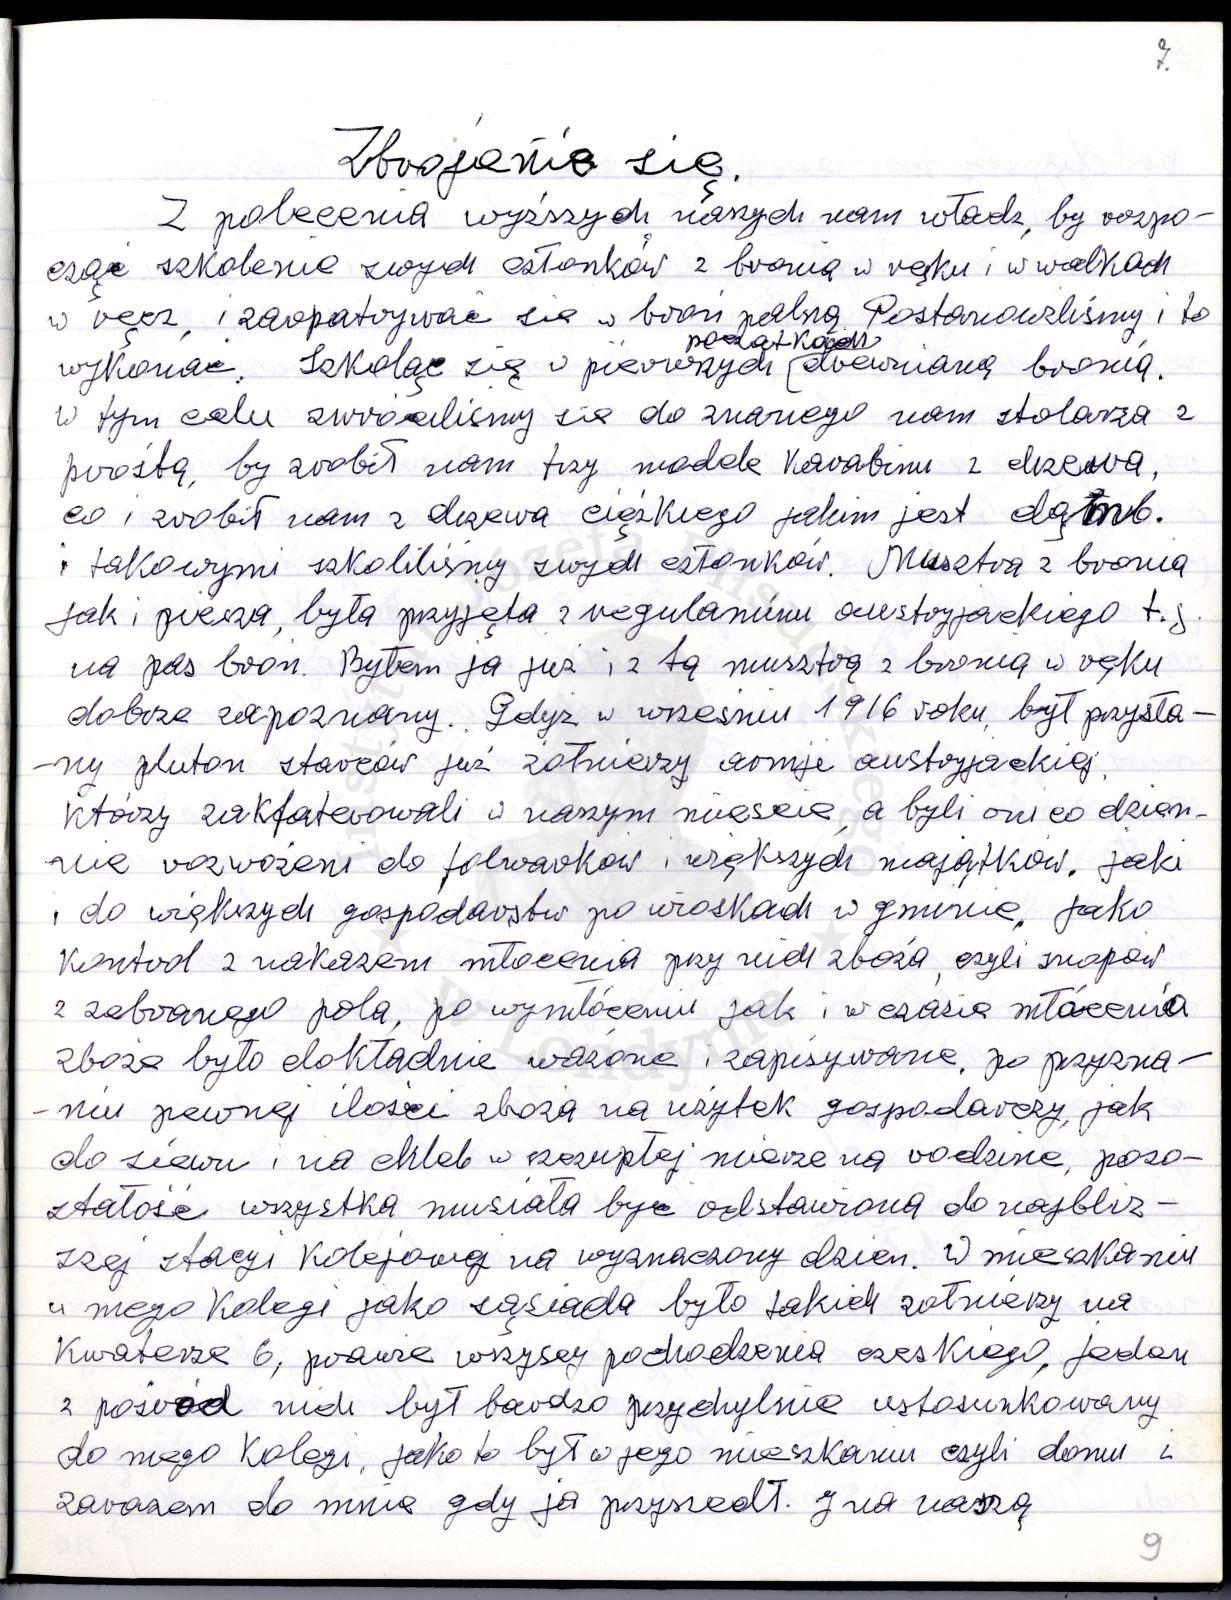 7.
Zbrojenie się.
Z polecenia wyższych naszych nam władz, by rozpo-
cząć szkolenie swych członków z bronią w ręku i w walkach
w ręcz, i zaopatrywać się w broń palną Postanowiliśmy i to
wykonać. Szkoląc się w pierwszych początkach drewnianą bronią.
W tym celu zwróciliśmy się do znanego nam stolarza z
prośtą, by zrobił nam trzy modele karabinu z drzewa,
co i zrobił nam z drzewa ciężkiego jakim jest dąb.
i takowymi szkoliliśmy swych członków. Musztra z bronią
jak i piesza, była przyjęta z regulaminu austryjackiego t.j.
na pas broń. Byłem ja już i z tą musztrą z bronią w ręku
dobrze zapoznany. Gdyż w wrześniu 1916 roku, był przysła-
-ny pluton starców już żołnierzy armje austryjackiej,
którzy zakfaterowali w naszym mieście, a byli oni co dzien-
-nie rozwożeni do folwarków i większych majątków, jaki
i do większych gospodarstw po wioskach w gminie, jako
kontrol z nakazem młocenia przy nich zboża, czyli snopów
z zebranego pola, po wymłóceniu jak i w czasie młócenia
zboże było dokładnie ważone i zapisywane, po przyzna-
-niu pewnej ilości zboża na użytek gospodarczy, jak
do siewu i na chleb w szczupłej mierze na rodzine, pozo-
stałość wszystka musiała być odstawiona do najbliż-
szej stacyi kolejowej na wyznaczony dzień. W mieszkaniu
u mego kolegi jako sąsiada było takich żołnierzy na
kwaterze 6, prawie wszyscy pochodzenia czeskiego, jeden
z pośród nich był bardzo przychylnie ustosunkowany
do mego kolegi, jako to był w jego mieszkaniu czyli domu i
zarazem do mnie gdy ja przyszedł. I na naszą
9
Instytut Józefa Piłsudskiego
w Londynie